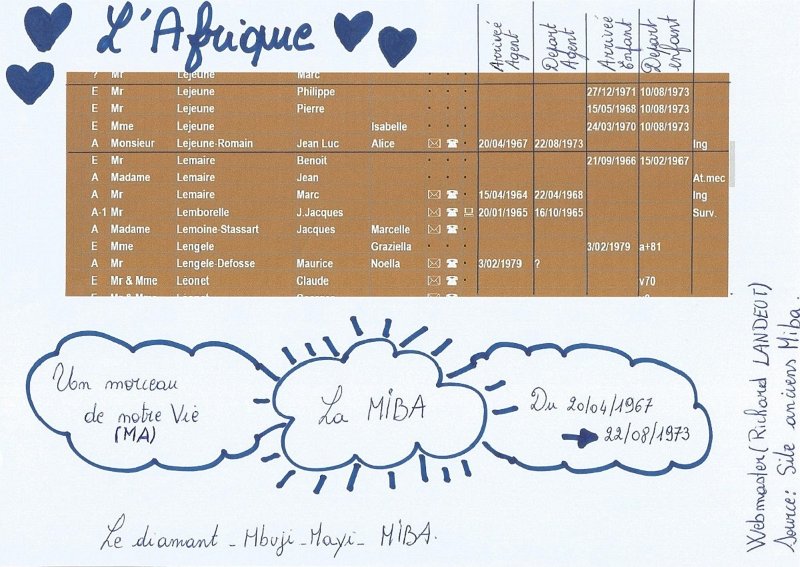 L'Afrique
Arrivée Agent
Départ Agent
Arrivée Enfant
Départ enfant
? Mr Lejeune Marc
E Mr Lejeune Philippe 27/12/1971 10/08/1973
E Mr Lejeune Pierre 15/05/1968 10/08/1973
E Mme Lejeune Isabelle 24/03/1970 10/08/1973
A Monsieur Lejeune-Romain Jean Luc Alice 20/04/1967 22/08/1973 Ing
E Mr Lemaire Benoit 21/09/1966 15/02/1967
A Madame Lemaire Jean At.mec
A Mr Lemaire Marc 15/04/1964 22/04/1968 Ing
A-1 Mr Lemborelle J.Jacques 20/01/1965 16/10/1965 Surv.
A Madame Lemoine-Stassart Jacques Marcelle
E Mme Lengele Graziella 3/02/1979 a+81
A Mr Lengele-Defosse Maurice Noella 3/02/1979 ?
E Mr & Mme Leonet Claude v70
E Mr & Mme Leonet
Un morceau
de notre Vie
(MA)
La MIBA
Du 20/04/1967
22/08/1973
Le diamant - Mbuji-Mayi - MIBA.
Webmaster (Richard LANDEUT)
Source: Site anciens Miba.